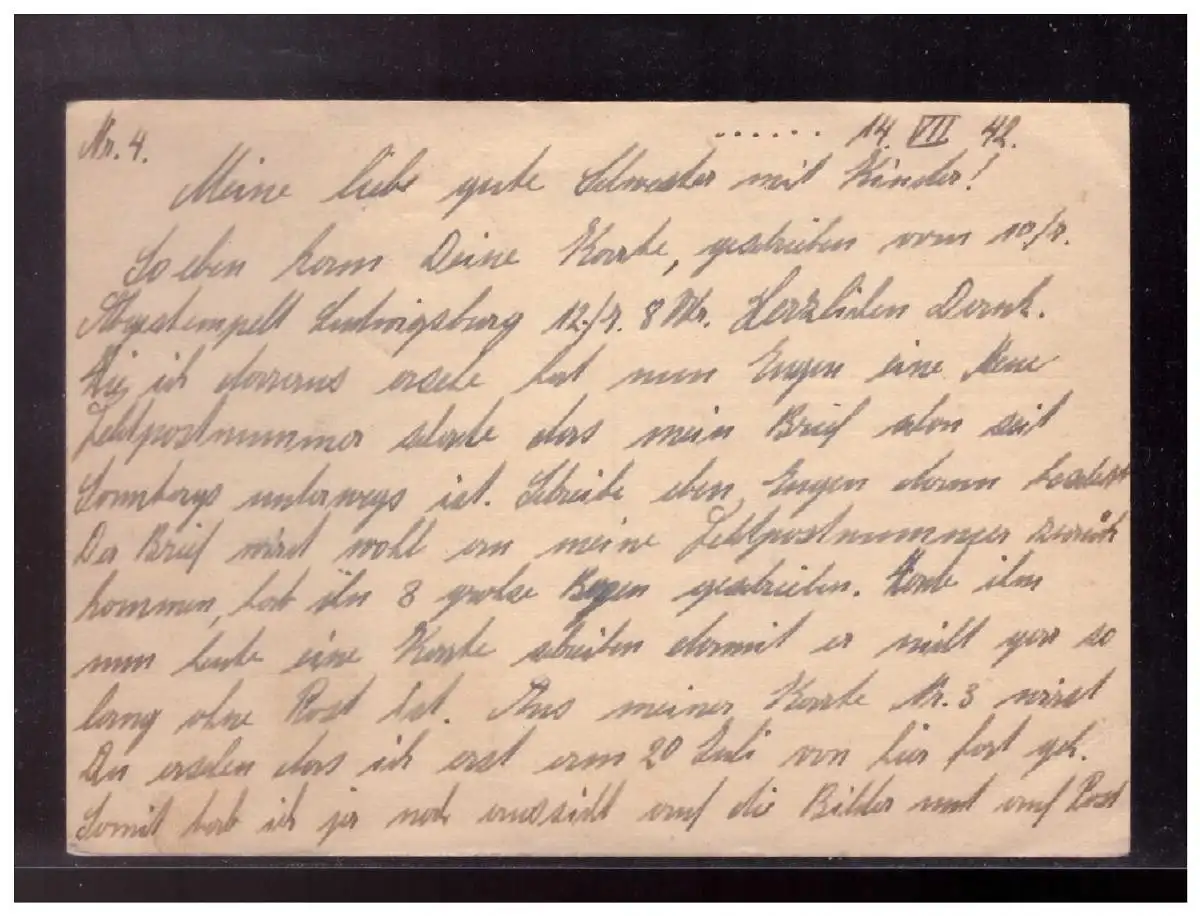 Nr. 4. ...... 14. VII 42.
Meine liebe gute Schwester mit Kinder!
Soeben kam Deine Karte, geschrieben vom 10/7.
Abgestempelt Ludwigsburg 12./7. 8 Uhr. Herzlichen Dank.
Wie ich daraus ersehe hat nun Eugen eine Neue
Feldpostnummer schade das mein Brief schon seit
Sonntags unterwegs ist. Schreibe eben Eugen dann
Der Brief wird wohl an meine Feldpostnummer zurück
kommen, hab ihn 8 große Bogen geschrieben. Werde ihm
nun heute eine Karte schreiben damit er nicht gar so
lang ohne Post ist. Aus meiner Karte Nr. 3 wirst
Du ersehen das ich erst am 20 Juli von hier fort geh.
Somit hab ich ja noch aussicht auf die Bilder und auf Post